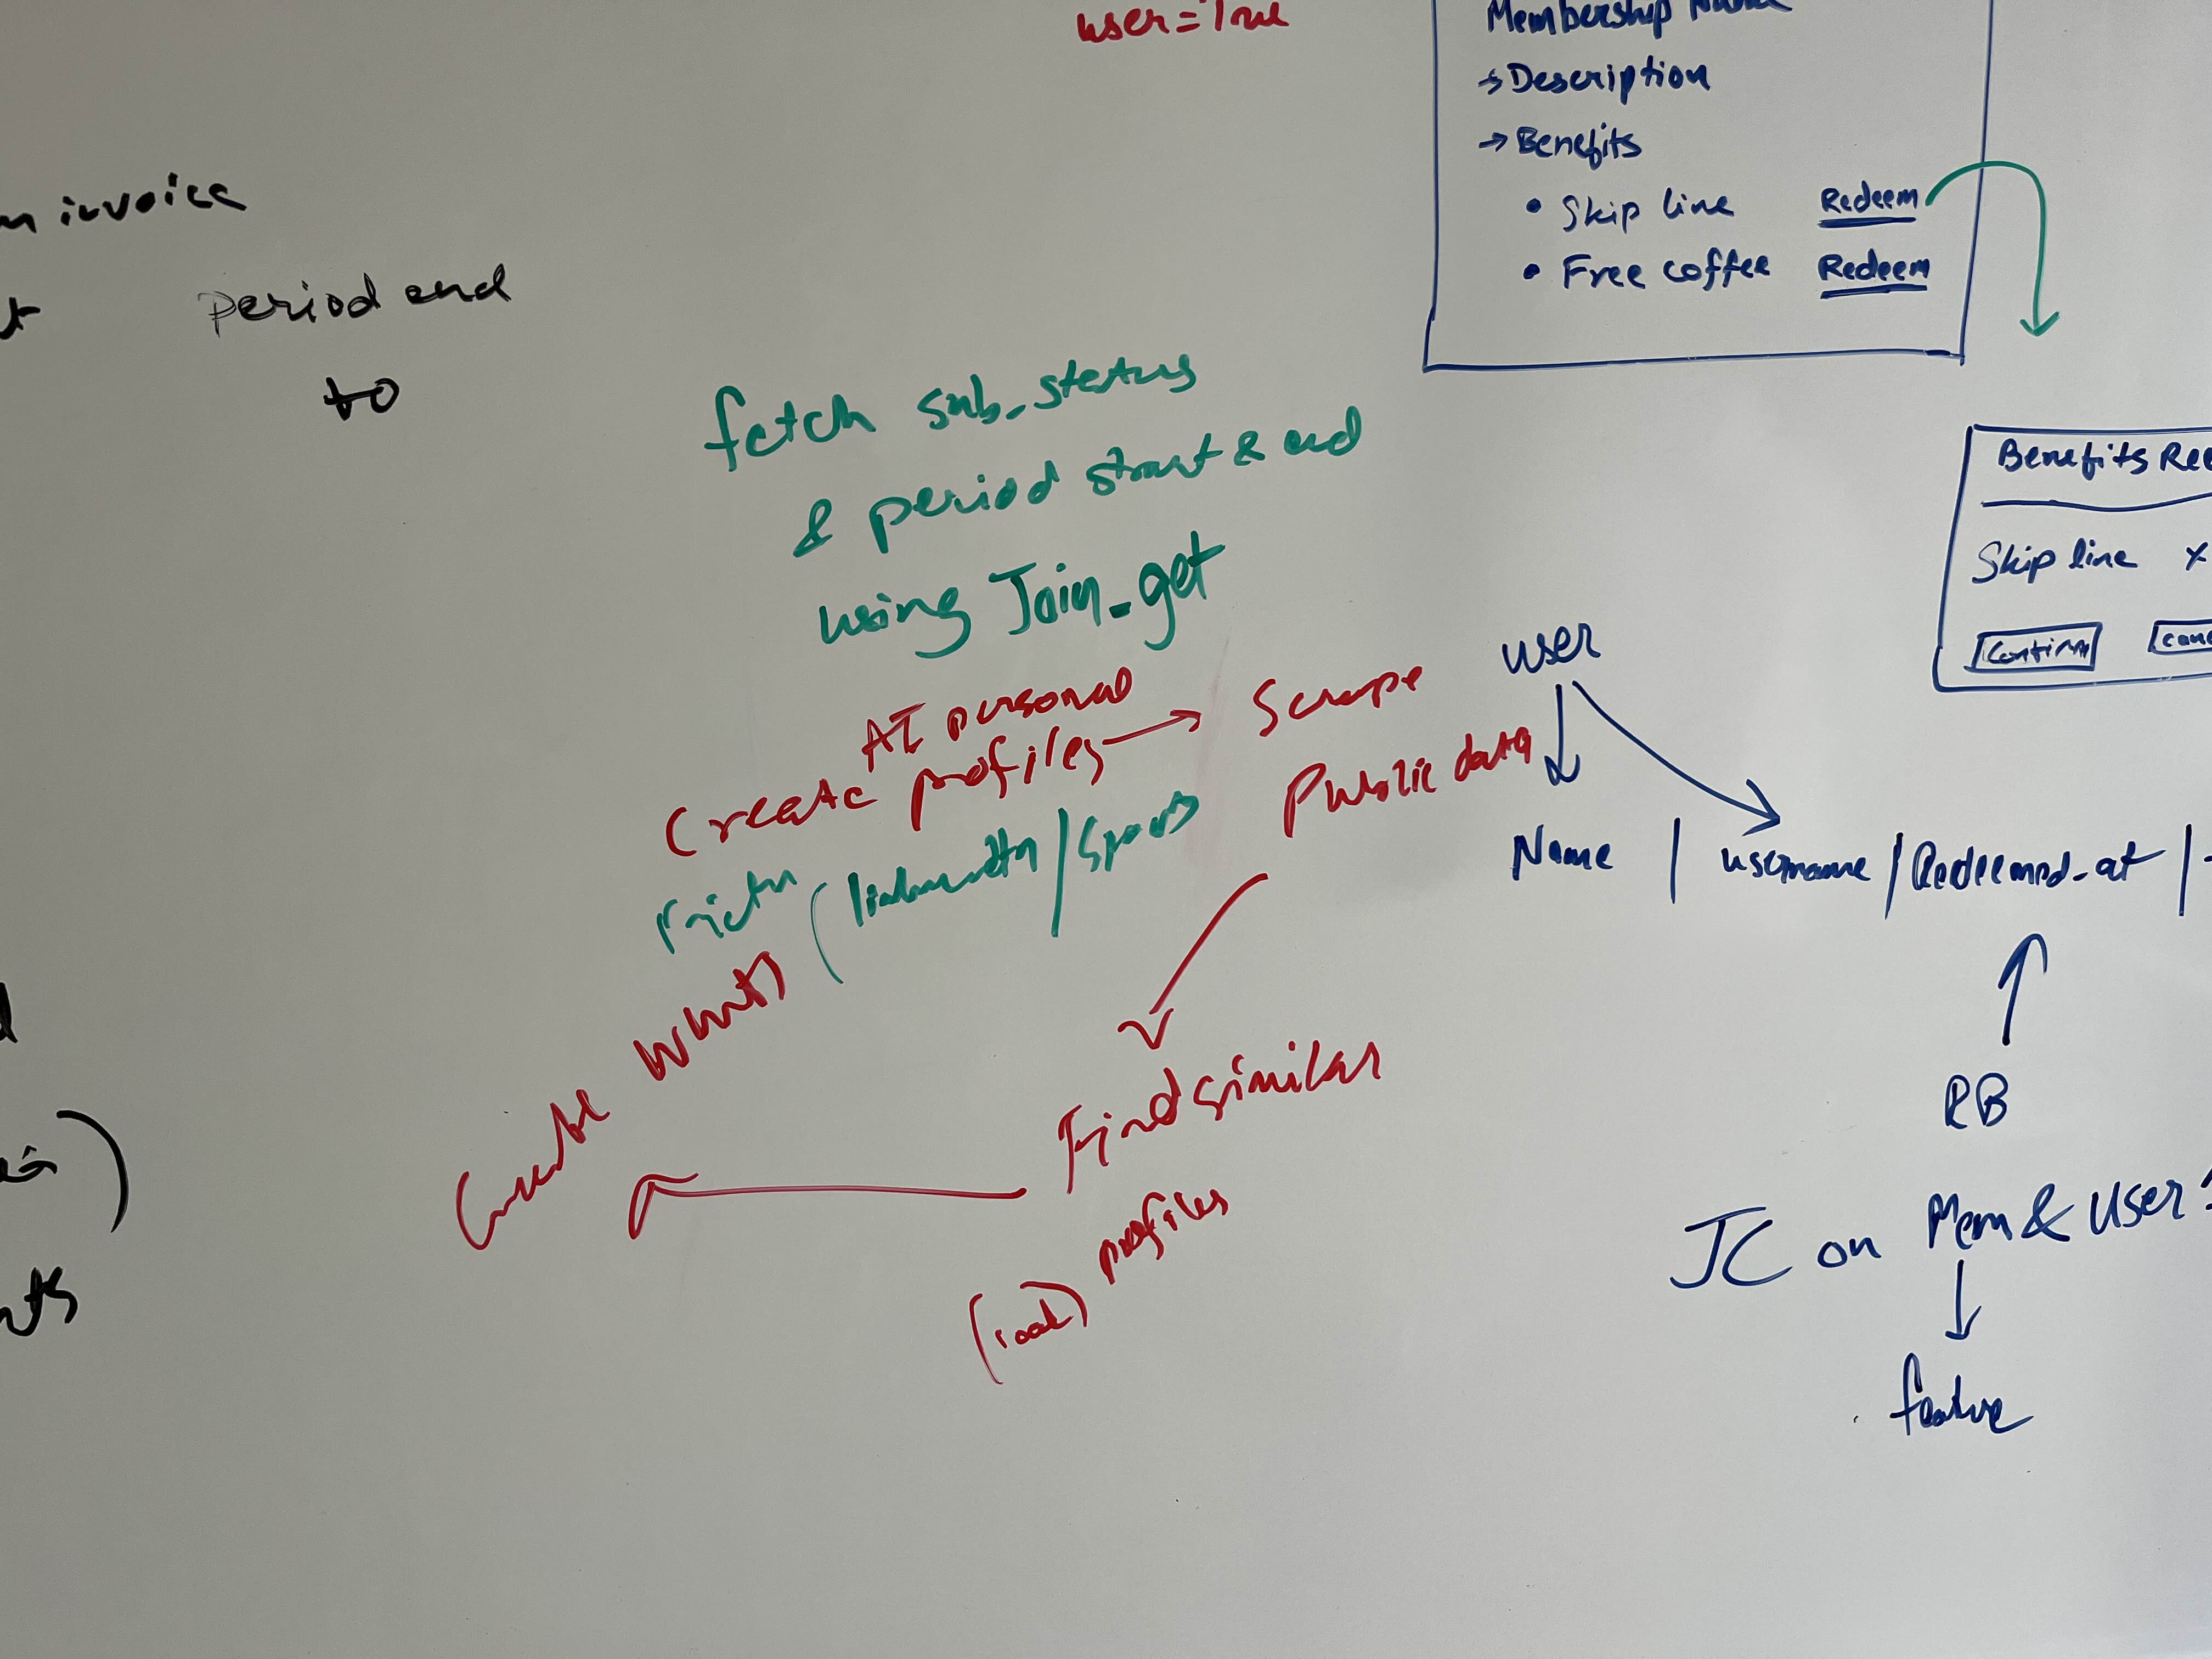 user=True
Membership Name
→ Description
→ Benefits
• Skip line Redeem
• Free coffee Redeem
invoice
period end
to
fetch sub_status
& period start & end
using Join_get
Benefits
Skip line x
Confirm
user
AI personal
Create profiles → Scrape
Public data
/ Sports
Name | username | Redeemed_at |
Find similar
profiles
Create
RB
JC on Mem & User
feature